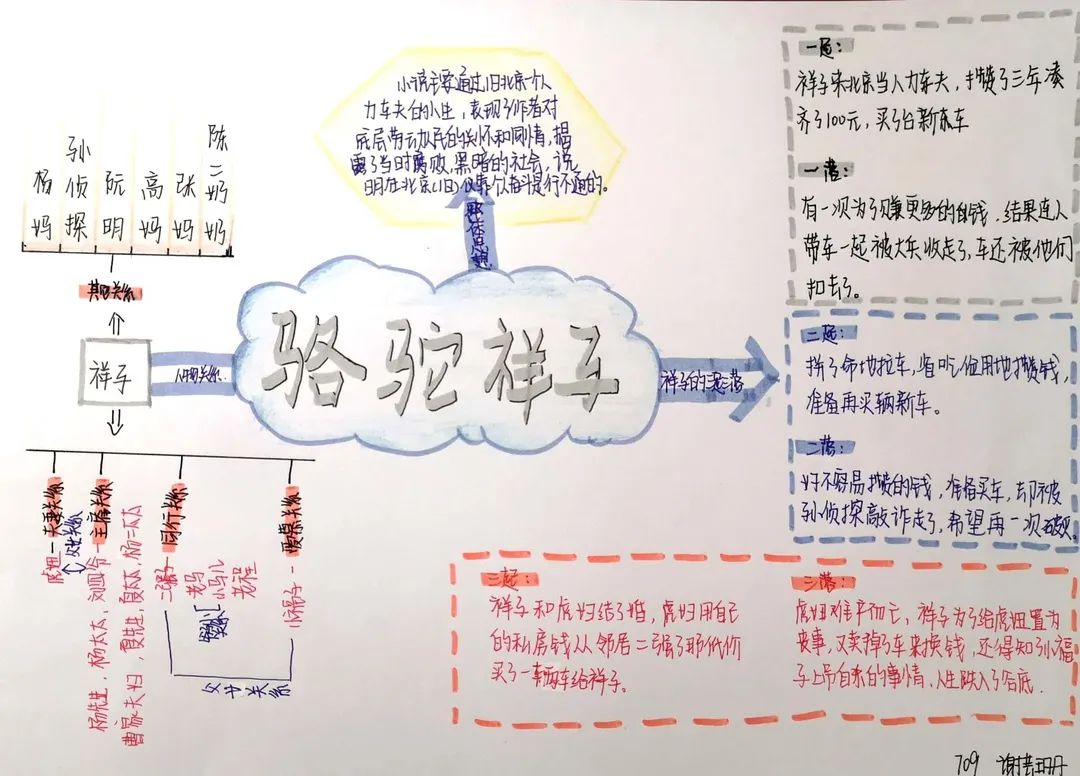 小说主要通过旧北京一个人
力车夫的一生，表现了作者对
底层劳动人民的关怀和同情，揭
露了当时腐败，黑暗的社会，说
明在北京(旧)仅靠个人奋斗是行不通的。
骆驼祥子
人物关系
祥子
其他关系
杨妈
孙侦探
阮明
高妈
张妈
陈二奶奶
虎妞－夫妻关系
父女关系
杨先生，杨太太，刘四爷－主雇关系
曹易夫妇，夏先生，夏太太，杨二太太
二强子
老马
小马儿
老程
同行关系
小福子－
父女关系
祥子的起落
一起：
祥子来北京当人力车夫，攒了三年凑
齐了100元，买了台新车
一落：
有一次为了赚更多的钱，结果连人
带车一起被大兵收走了，车还被他们
扣去了。
二起：
拼了命地拉车，省吃俭用地攒钱，
准备再买辆新车。
二落：
好不容易攒的钱，准备买车，却被
孙侦探敲诈走了，希望再一次破灭。
三起：
祥子和虎妞结了婚，虎妞用自己
的私房钱从邻居二强子那低价
买了一辆车给祥子。
三落：
虎妞难产而亡，祥子为了给虎妞置办
丧事，又卖掉了车来换钱，还得知了小福
子上吊自杀的事情，人生跌入了谷底．
709